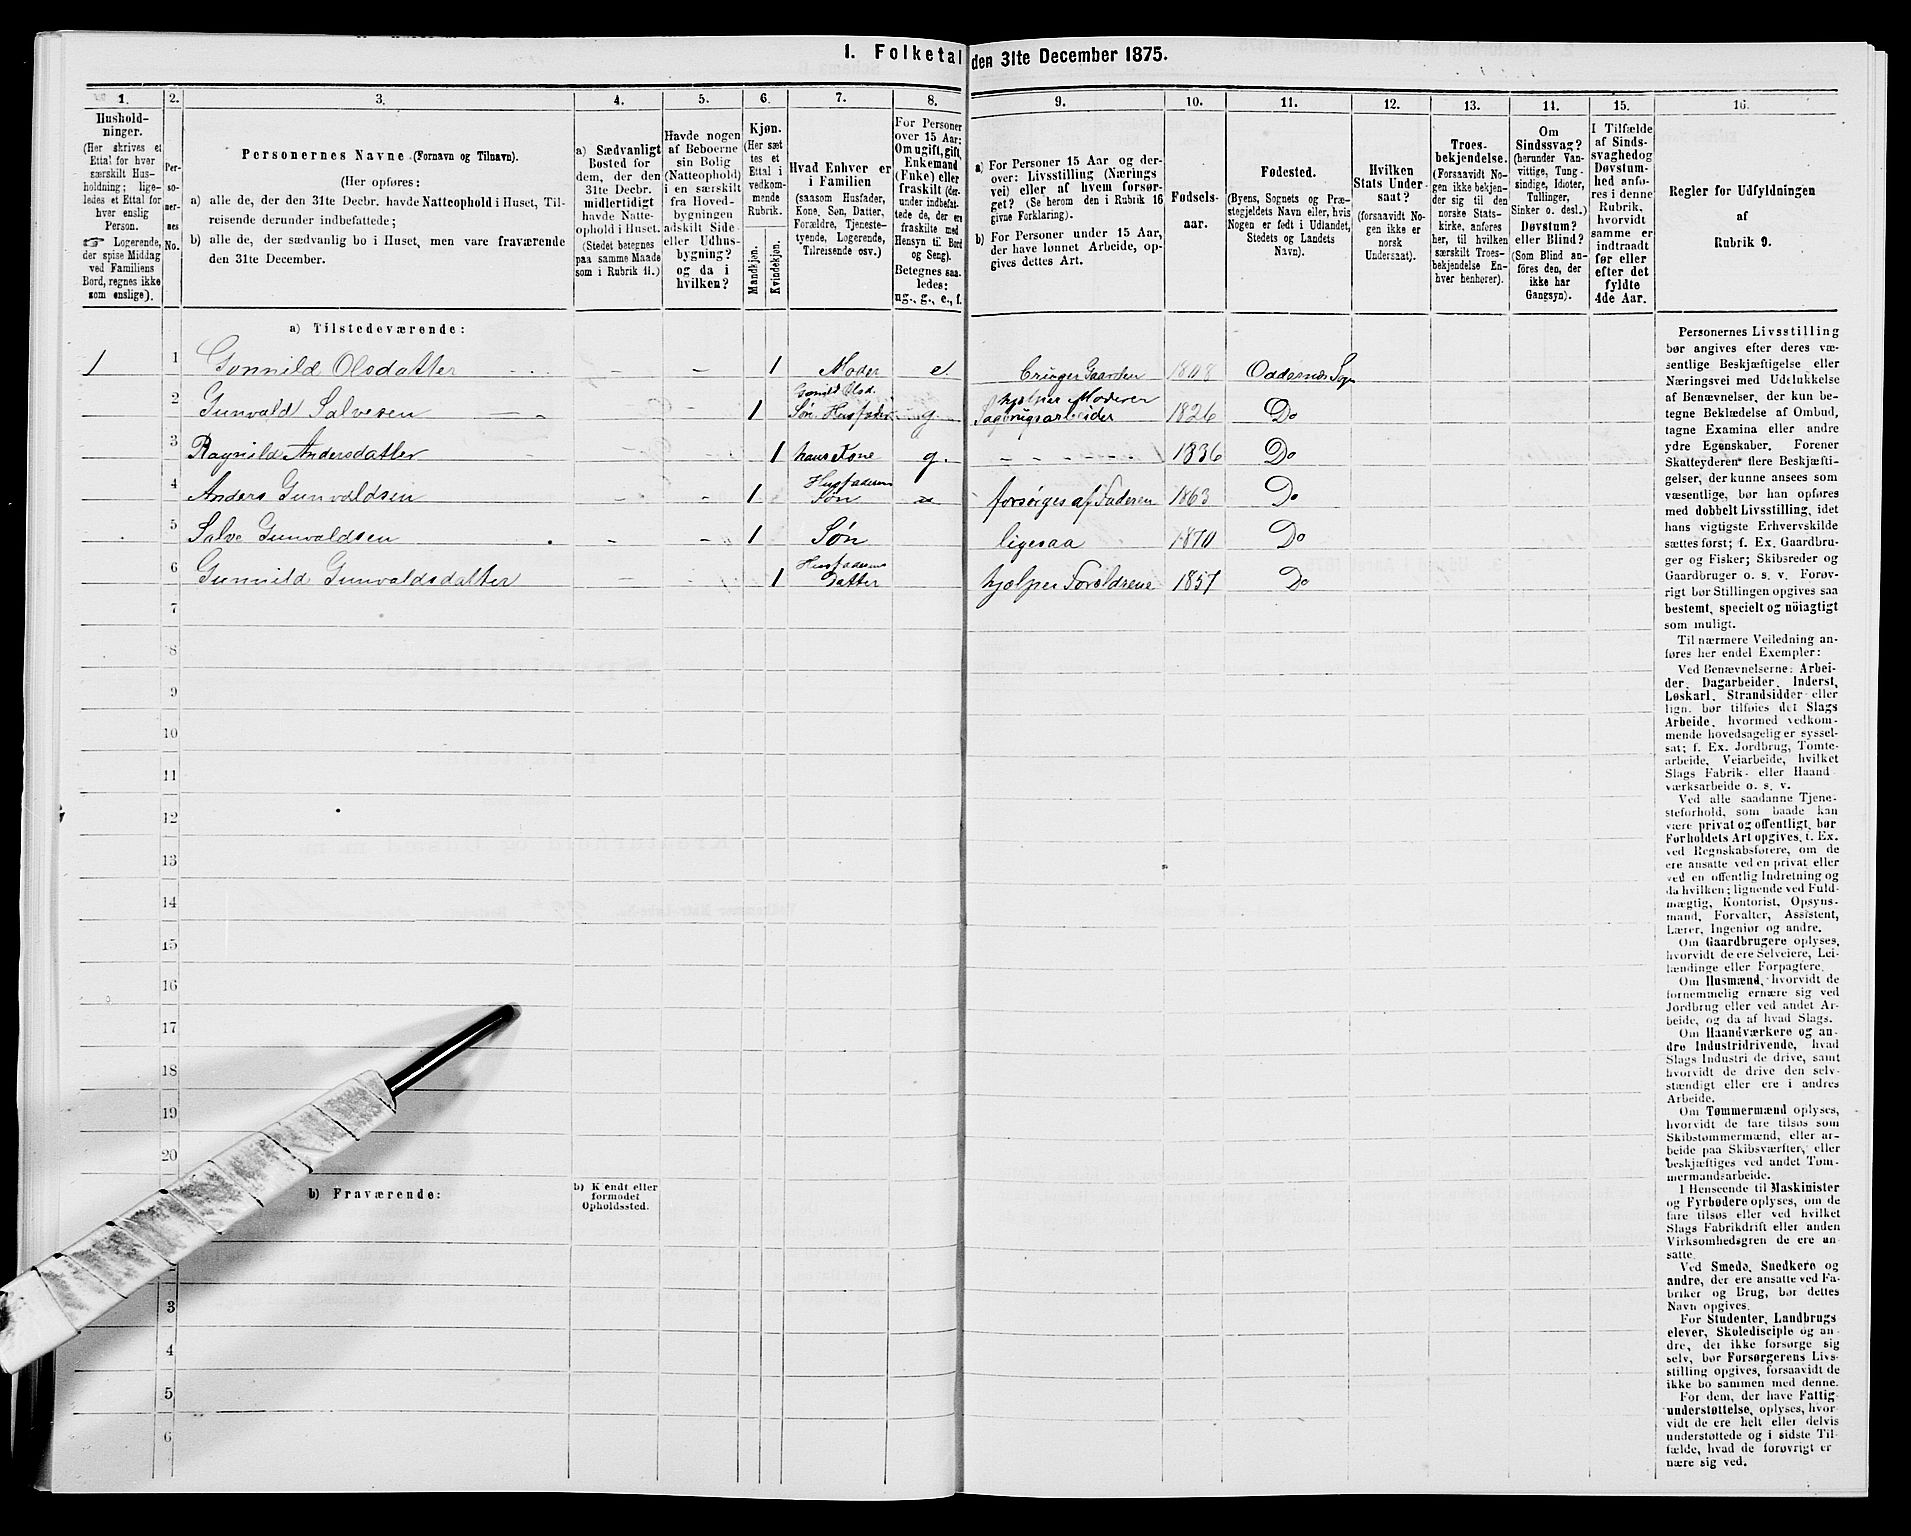 1. Folketal den 31te December 1875.
1.
2.
3.
4.
5.
6.
7.
8.
9.
10.
11.
12.
13.
14.
15.
16.
Hushold-
ninger.
(Her skrives et
Ettal for hver
særskilt Hus-
holdning; lige-
ledes et Ettal for
hver enslig
Person.
☞ Logerende,
der spise Middag
ved Familiens
Bord, regnes ikke
som enslige).
Per-
so-
ner-
nes
No.
Personernes Navne (Fornavn og Tilnavn).
(Her opføres:
a) alle de, der den 31te Decbr. havde Natteophold i Huset, Til-
reisende derunder indbefattede;
b) alle de, der sædvanlig bo i Huset, men vare fraværende
den 31te December.
a) Sædvanligt
Bosted for
dem, der den
31te Decbr.
midlertidigt
havde Natte-
ophold i Huset.
(Stedet betegnes
paa samme Maade
som i Rubrik 11.)
Havde nogen
af Beboerne
sin Bolig
(Natteophold)
i en særskilt
fra Hoved-
bygningen
adskilt Side-
eller Udhus-
bygning?
og da i
hvilken?
Kjøn.
(Her sæt-
tes et
Ettal i
vedkom-
mende
Rubrik.
Mandkjøn.
Kvindekjøn.
Hvad Enhver er
i Familien
(saasom Husfader,
Kone, Søn, Datter,
Forældre, Tjeneste-
tyende, Logerende,
Tilreisende osv.)
For Personer
over 15 Aar:
Om ugift, gift,
Enkemand
(Enke) eller
fraskilt (der-
under indbefat-
tede de, der ere
fraskilte med
Hensyn til Bord
og Seng).
Betegnes saa-
ledes:
ug., g., e., f.
a) For Personer 15 Aar og der-
over: Livsstilling (Nærings-
vei) eller af hvem forsør-
get? (Se herom den i Rubrik 16
givne Forklaring).
b) For Personer under 15 Aar,
der have lønnet Arbeide, op-
gives dettes Art.
Fødsels-
aar.
Fødested.
(Byens, Sognets og Præ-
stegjeldets Navn eller, hvis
Nogen er født i Udlandet,
Stedets og Landets
Navn).
Hvilken
Stats Under-
saat?
(forsaavidt No-
gen ikke er
norsk
Undersaat).
Troes-
bekjendelse.
(Forsaavidt No-
gen ikke bekjen-
der sig til den
norske Stats-
kirke, anføres
her, til hvilken
særskilt Troes-
bekjendelse En-
hver henhører).
Om
Sindssvag?
(herunder Van-
vittige, Tung-
sindige, Idioter,
Tullinger,
Sinker o. desl.)
Døvstum?
eller Blind?
(Som Blind an-
føres den, der
ikke har
Gangsyn).
I Tilfælde
af Sinds-
svaghed og
Døvstum-
hed anfø-
res i denne
Rubrik,
hvorvidt
samme er
indtraadt
før eller
efter det
fyldte
4de Aar.
Regler for Udfyldningen
af
Rubrik 9.
a) Tilstedeværende:
1 1 Gunnild Olsdatter - 1 Moder e. bringer Gaarden 1808 Oddernes Sogn
2 Gunvald Salvesen 1 Gunild Olsd. Søn, Husfader g hjælper Moderen Sagbrugsarbeider 1826 Do
3 Ragnild Andersdatter - - 1 hans Kone g. - - - - - - 1836 Do
4 Anders Gunvaldsen - - 1 Husfaderens Søn forsørges af Faderen 1863 Do
5 Salve Gunvaldsen - - 1 Søn ligesaa 1870 Do
6 Gunnild Gunvaldsdatter - - 1 Husfaderens Datter hjælper Foreldrene 1857 Do
7
8
9
10
11
12
13
14
15
16
17
18
19
20
b) Fraværende:
b) Kjendt eller
formodet
Opholdssted.
3
4
5
6
Personernes Livsstilling
bør angives efter deres væ-
sentlige Beskjæftigelse eller
Næringsvei med Udelukkelse
af Benævnelser, der kun be-
tegne Beklædelse af Ombud,
tagne Examina eller andre
ydre Egenskaber. Forener
Skatteyderen flere Beskjæfti-
gelser, der kunne ansees som
væsentlige, bør han opføres
med dobbelt Livsstilling, idet
hans vigtigste Erhvervskilde
sættes først; f. Ex. Gaardbru-
ger og Fisker; Skibsreder og
Gaardbruger o. s. v. Forøv-
rigt bør Stillingen opgives saa
bestemt, specielt og nöiagtigt
som muligt.
Til nærmere Veiledning an-
føres her endel Exempler:
Ved Benævnelserne: Arbei-
der, Dagarbeider, Inderst,
Løskarl, Strandsidder eller
lign. bør tilføies det Slags
Arbeide, hvormed vedkom-
mende hovedsagelig er syssel-
sat; f. Ex. Jordbrug, Tomte-
arbeide, Veiarbeide, hvilket
Slags Fabrik- eller Haand-
værksarbeide o. s. v.
Ved alle saadanne Tjene-
steforhold, som baade kan
være privat og offentligt, bør
Forholdets Art opgives, f. Ex.
ved Regnskabsførere, om de
ere ansatte ved en privat eller
ved en offentlig Indretning og
da hvilken; lignende ved Fuld-
mægtig, Kontorist, Opsyns-
mand, Forvalter, Assistent,
Lærer, Ingeniør og andre.
Om Gaardbrugere oplyses,
hvorvidt de ere Selveiere, Lei-
lændinge eller Forpagtere.
Om Husmænd, hvorvidt de
fornemmelig ernære sig ved
Jordbrug eller ved andet Ar-
beide, og da af hvad Slags.
Om Haandværkere og an-
dre Industridrivende, hvad
Slags Industri de drive, samt
hvorvidt de drive den selv-
stændigt eller ere i andres
Arbeide.
Om Tømmermænd oplyses,
hvorvidt de fare tilsøs som
Skibstømmermænd, eller ar-
beide paa Skibsværfter, eller
beskjæftiges ved andet Tøm-
mermandsarbeide.
I Henseende til Maskinister
og Fyrbødere oplyses, om de
fare tilsøs eller ved hvilket
Slags Fabrikdrift eller anden
Virksomhedsgren de ere an-
satte.
Ved Smede, Snedkere og
andre, der ere ansatte ved Fa-
briker og Brug, bør dettes
Navn opgives.
For Studenter, Landbrugs-
elever, Skoledisciple og an-
dre, der ikke forsørge sig
selv, bør Forsørgerens Livs-
stilling opgives, forsaavidt de
ikke bo sammen med denne.
For dem, der have Fattig-
understøttelse, oplyses, hvor-
vidt de ere helt eller delvis
understøttede og i sidste Til-
fælde, hvad de forøvrigt er-
nære sig ved.